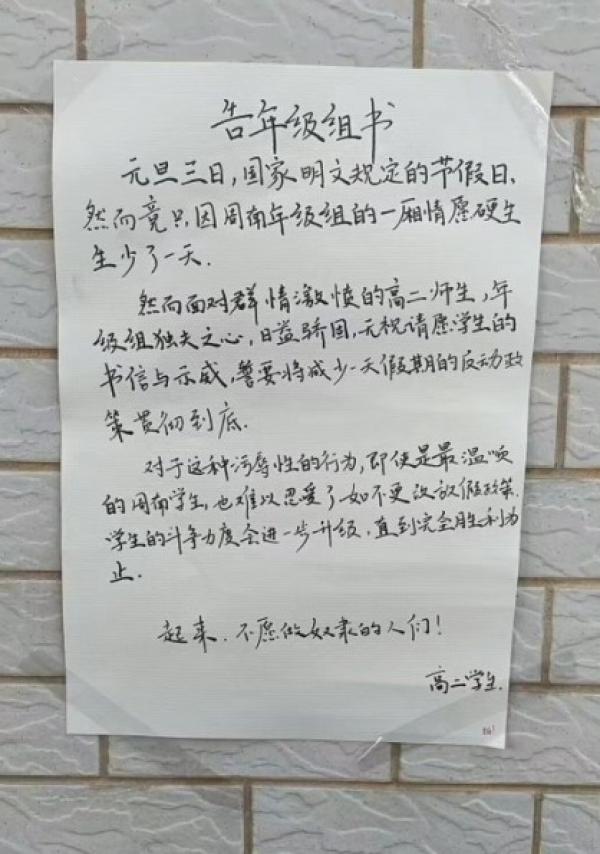 告年级组书
元旦三日,国家明文规定的节假日、
然而竟只因周南年级组的一厢情愿硬生
生少了一天.
然而面对群情激愤的高二师生,年
级组独夫之心,日益骄固,无视请愿学生的
书信与示威,誓要将减少一天假期的反动政
策贯彻到底.
对于这种污辱性的行为,即使是最温顺
的周南学生,也难以忍受了如不更改放假政策.
学生的斗争力度会进一步升级,直到完全胜利为
止.
起来.不愿做奴隶的人们!
高二学生.